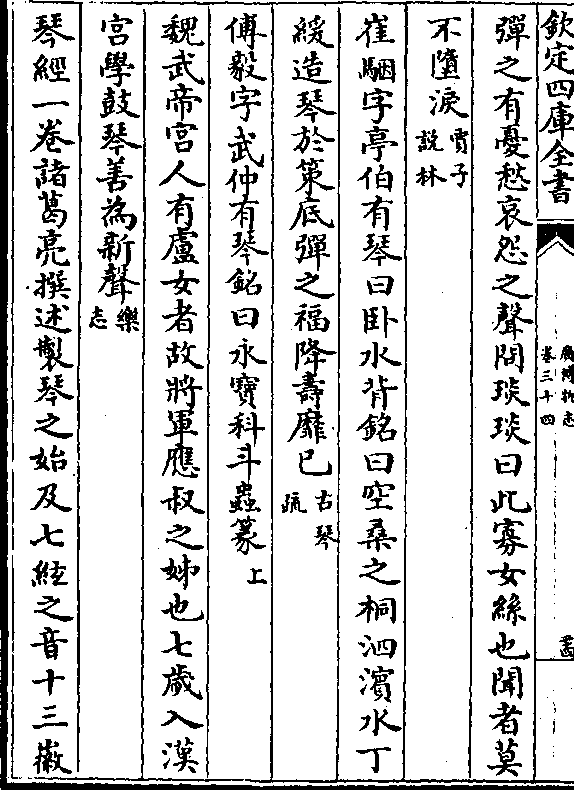 欽定四庫全書
廣博物志
卷三十四
彈之有憂愁哀怨之聲問琰琰曰此寡女絲也聞者莫
不墮淚賈子說林
崔駰字亭伯有琴曰卧水背銘曰空桑之桐泗濱水丁
緩造琴於策底彈之福降壽靡已古琴疏
傅毅字武仲有琴銘曰永寶科斗蟲篆上
魏武帝宮人有盧女者故將軍應叔之姊也七歲入漢
宮學鼓琴善為新聲樂志
琴經一卷諸葛亮撰述製琴之始及七絃之音十三徽